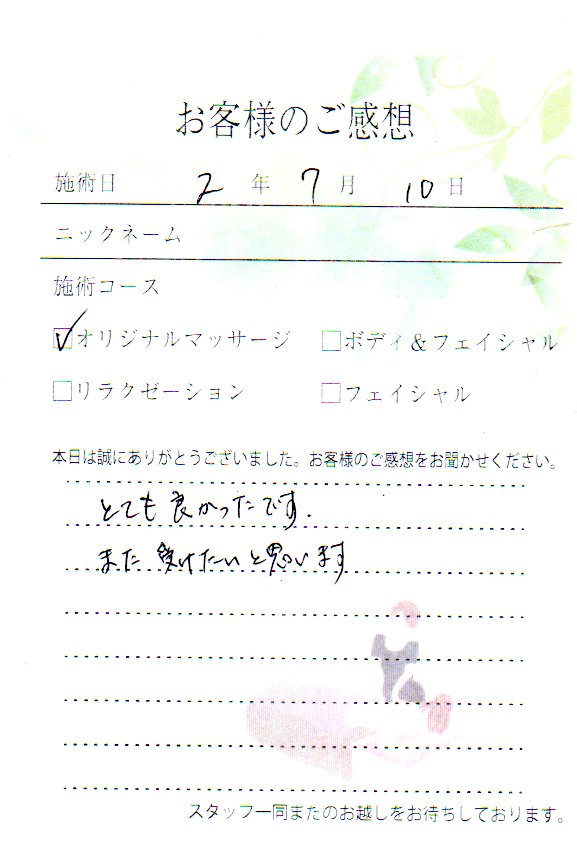 お客様のご感想
施術日 2年 7月 10日
ニックネーム
施術コース
☑オリジナルマッサージ □ボディ＆フェイシャル
□リラクゼーション □フェイシャル
本日は誠にありがとうございました。お客様のご感想をお聞かせください。
とても良かったです.
また受けたいと思います
スタッフ一同またのお越しをお待ちしております。